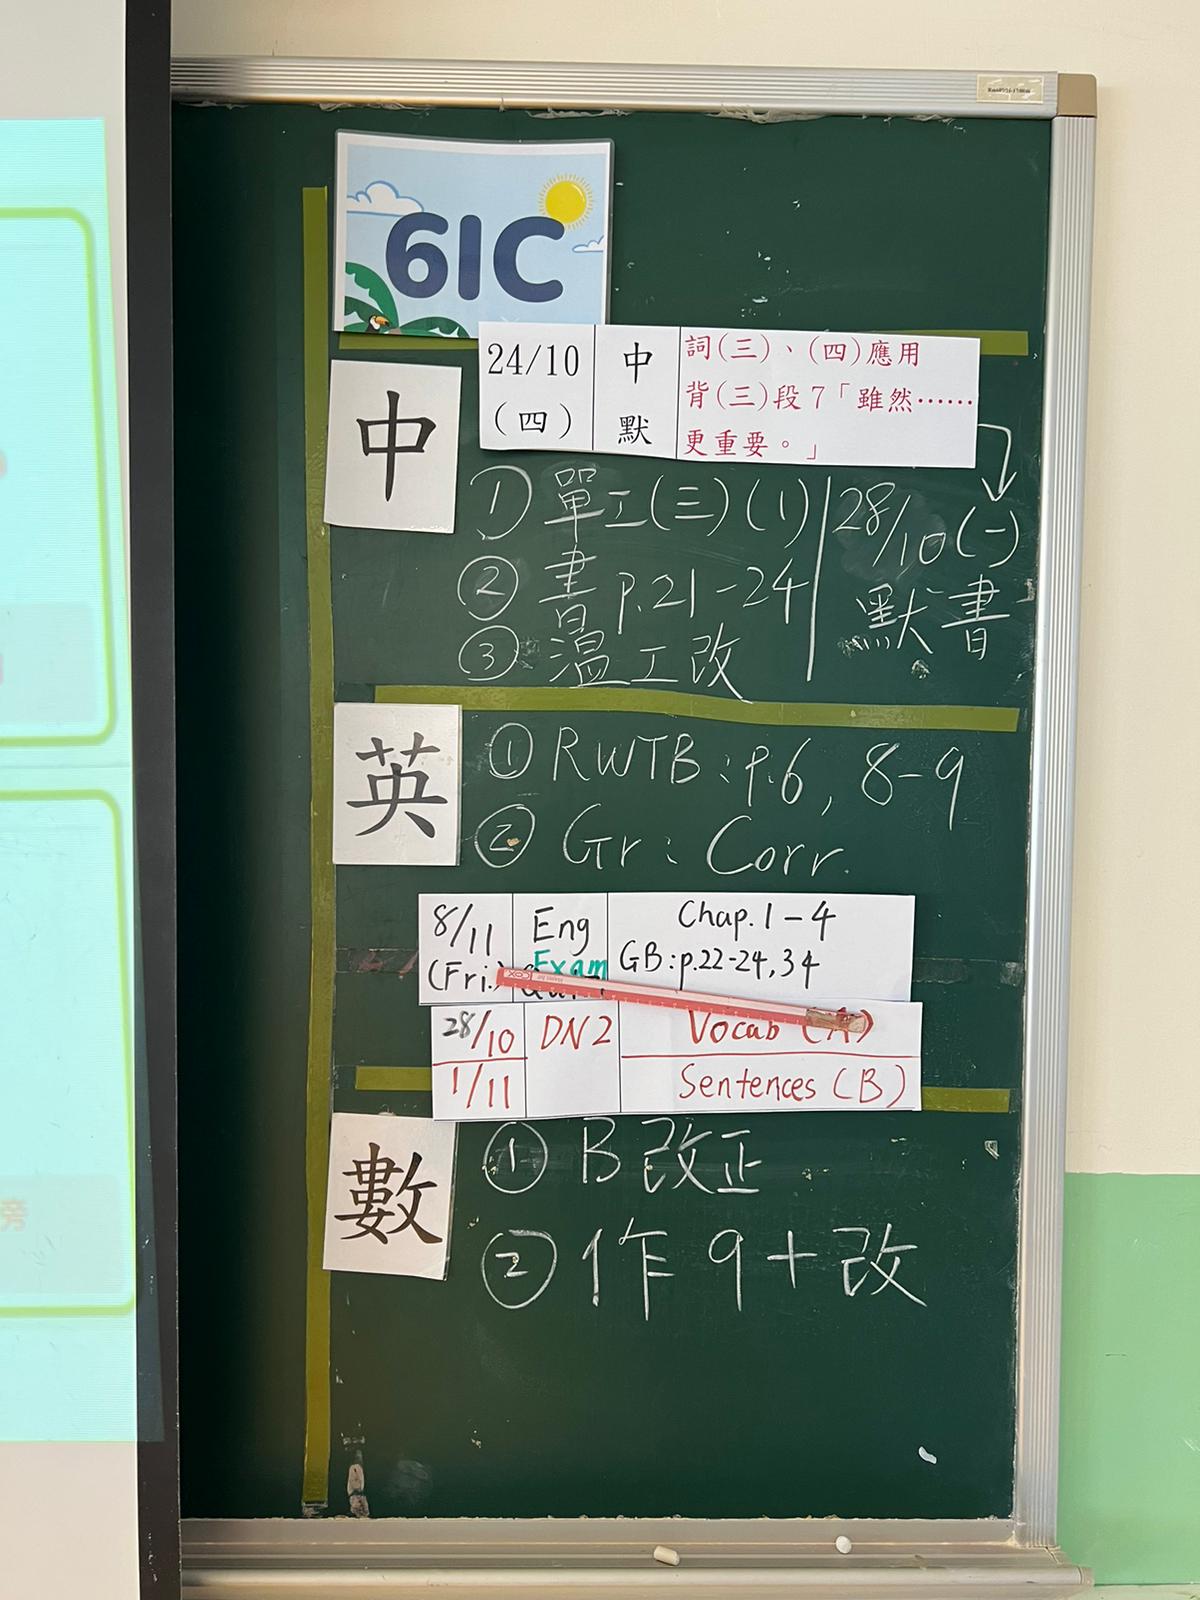 6IC
24/10
(四)
中
默
詞(三)、(四)應用
背(三)段7「雖然……
更重要。」
中
① 單工(三)(1)
② 書 p.21-24
③ 溫工改
28/10(一)
默書
英
① RWTB: p.6, 8-9
② Gr: Corr.
8/11
(Fri.)
Eng
Exam
Chap. 1-4
GB: p.22-24, 34
28/10
DN2
Vocab (A)
1/11
Sentences (B)
數
① B改正
② 作9+改
旁